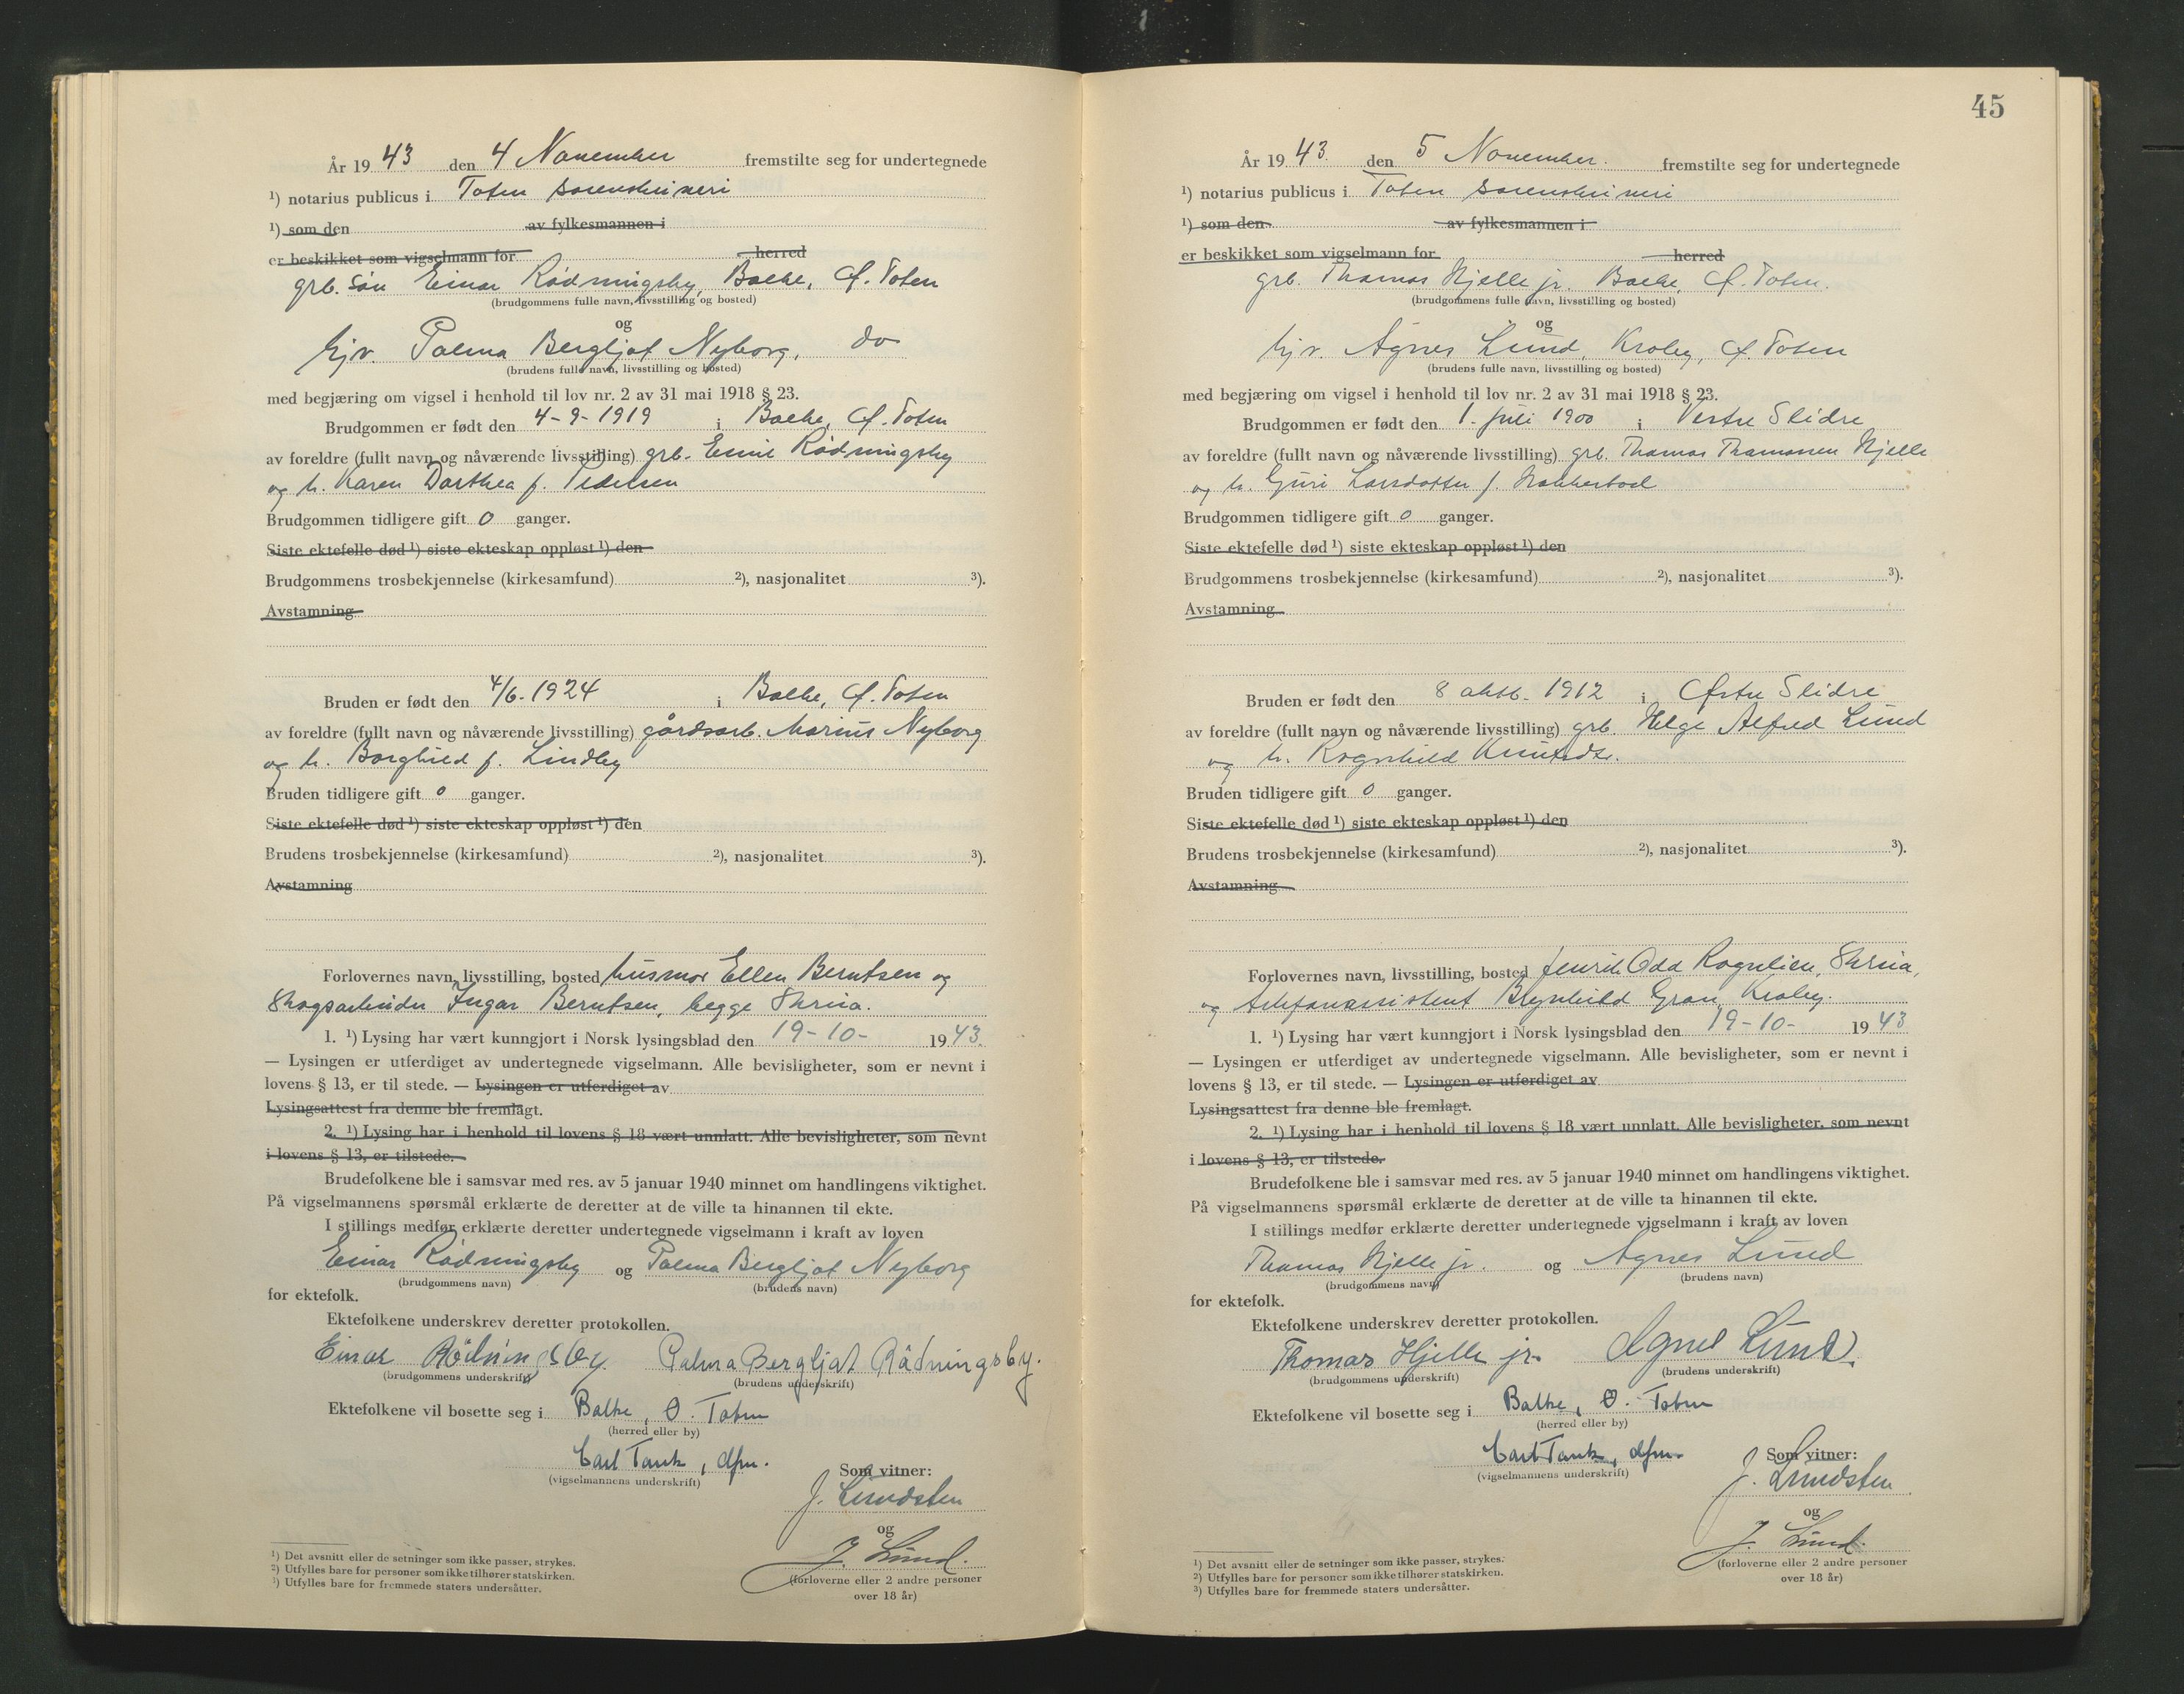 År 1943 den 4 November fremstilte seg for undertegnede
¹) notarius publicus i Toten sorenskriveri
¹) som den av fylkesmannen i
er beskikket som vigselmann for herred
grb. søn Einar Rødningsby, Balke, Ø. Toten
(brudgommens fulle navn, livsstilling og bosted)
og
hjv. Palma Bergljot Nyborg, do
(brudens fulle navn, livsstilling og bosted)
med begjæring om vigsel i henhold til lov nr. 2 av 31 mai 1918 § 23.
Brudgommen er født den 4-9-1919 i Balke, Ø. Toten
av foreldre (fullt navn og nåværende livsstilling) grb. Emil Rødningsby
og h. Karen Dorthea f. Pedersen
Brudgommen tidligere gift 0 ganger.
Siste ektefelle død ¹) siste ekteskap oppløst ¹) den
Brudgommens trosbekjennelse (kirkesamfund) ²), nasjonalitet ³).
Avstamning
Bruden er født den 4/6-1924 i Balke, Ø. Toten
av foreldre (fullt navn og nåværende livsstilling) gårdsarb. Marius Nyborg
og h. Borghild f. Lindby
Bruden tidligere gift 0 ganger.
Siste ektefelle død ¹) siste ekteskap oppløst ¹) den
Brudens trosbekjennelse (kirkesamfund) ²), nasjonalitet ³).
Avstamning
Forlovernes navn, livsstilling, bosted husmor Ellen Berntsen og
skogsarbeider Ingar Berntsen, begge Skreia.
1. ¹) Lysing har vært kunngjort i Norsk lysingsblad den 19-10- 1943.
— Lysingen er utferdiget av undertegnede vigselmann. Alle bevisligheter, som er nevnt i
lovens § 13, er til stede. — Lysingen er utferdiget av
Lysingsattest fra denne ble fremlagt.
2. ¹) Lysing har i henhold til lovens § 18 vært unnlatt. Alle bevisligheter, som nevnt
i lovens § 13, er tilstede.
Brudefolkene ble i samsvar med res. av 5 januar 1940 minnet om handlingens viktighet.
På vigselmannens spørsmål erklærte de deretter at de ville ta hinannen til ekte.
I stillings medfør erklærte deretter undertegnede vigselmann i kraft av loven
Einar Rødningsby og Palma Bergljot Nyborg
(brudgommens navn) (brudens navn)
for ektefolk.
Ektefolkene underskrev deretter protokollen.
Einar Rödningsby. Palma Bergljot Rødningsby.
(brudgommens underskrift) (brudens underskrift)
Ektefolkene vil bosette seg i Balke, Ø. Toten
(herred eller by)
Carl Tank, dfm.
(vigselmannens underskrift)
Som vitner:
J. Lundsten
og
J. Lund.
(forloverne eller 2 andre personer
over 18 år)
¹) Det avsnitt eller de setninger som ikke passer, strykes.
²) Utfylles bare for personer som ikke tilhører statskirken.
³) Utfylles bare for fremmede staters undersåtter.
45
År 1943. den 5 November. fremstilte seg for undertegnede
¹) notarius publicus i Toten sorenskriveri
¹) som den av fylkesmannen i
er beskikket som vigselmann for herred
grb. Thomas Hjelle jr. Balke, Ø. Toten.
(brudgommens fulle navn, livsstilling og bosted)
og
hjv. Agnes Lund, Kraby, Ø. Toten
(brudens fulle navn, livsstilling og bosted)
med begjæring om vigsel i henhold til lov nr. 2 av 31 mai 1918 § 23.
Brudgommen er født den 1. juli 1900 i Vestre Slidre
av foreldre (fullt navn og nåværende livsstilling) grb. Thomas Thomassen Hjelle
og h. Guri Larsdotter f.
Brudgommen tidligere gift 0 ganger.
Siste ektefelle død ¹) siste ekteskap oppløst ¹) den
Brudgommens trosbekjennelse (kirkesamfund) ²), nasjonalitet ³).
Avstamning
Bruden er født den 8 oktb. 1912 i Østre Slidre
av foreldre (fullt navn og nåværende livsstilling) grb. Helge Alfred Lund
og h. Ragnhild Knutsdtr.
Bruden tidligere gift 0 ganger.
Siste ektefelle død ¹) siste ekteskap oppløst ¹) den
Brudens trosbekjennelse (kirkesamfund) ²), nasjonalitet ³).
Avstamning
Forlovernes navn, livsstilling, bosted Odd Rognlien, Skreia,
og Brynhild Gran, Kraby.
1. ¹) Lysing har vært kunngjort i Norsk lysingsblad den 19-10- 1943
— Lysingen er utferdiget av undertegnede vigselmann. Alle bevisligheter, som er nevnt i
lovens § 13, er til stede. — Lysingen er utferdiget av
Lysingsattest fra denne ble fremlagt.
2. ¹) Lysing har i henhold til lovens § 18 vært unnlatt. Alle bevisligheter, som nevnt
i lovens § 13, er tilstede.
Brudefolkene ble i samsvar med res. av 5 januar 1940 minnet om handlingens viktighet.
På vigselmannens spørsmål erklærte de deretter at de ville ta hinannen til ekte.
I stillings medfør erklærte deretter undertegnede vigselmann i kraft av loven
Thomas Hjelle jr. og Agnes Lund
(brudgommens navn) (brudens navn)
for ektefolk.
Ektefolkene underskrev deretter protokollen.
Thomas Hjelle jr. Agnes Lund.
(brudgommens underskrift) (brudens underskrift)
Ektefolkene vil bosette seg i Balke, Ø. Toten
(herred eller by)
Carl Tank, dfm.
(vigselmannens underskrift)
Som vitner:
J. Lundsten
og
J. Lund.
(forloverne eller 2 andre personer
over 18 år)
¹) Det avsnitt eller de setninger som ikke passer, strykes.
²) Utfylles bare for personer som ikke tilhører statskirken.
³) Utfylles bare for fremmede staters undersåtter.